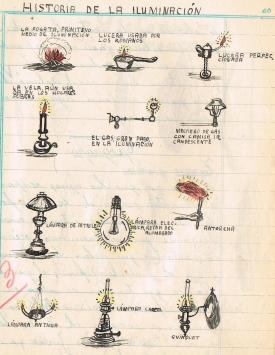 HISTORIA DE LA ILUMINACIÓN
LA FOGATA, PRIMITIVO
MEDIO DE ILUMINACIÓN
LUCERA USADA POR
LOS ROMANOS
LUCERA PERFEC
CIONADA
LA VELA, AÚN USA
DA EN LOS HOGARES
POBRES
EL GAS GRAN PASO
EN LA ILUMINACIÓN
MECHERO DE GAS
CON CAMISA IN
CANDESCENTE
LÁMPARA DE
LÁMPARA ELEC
TRICA, REINA DEL
ALUMBRADO
ANTORCHA
LÁMPARA ANTIGUA
LÁMPARA
QUINQUET